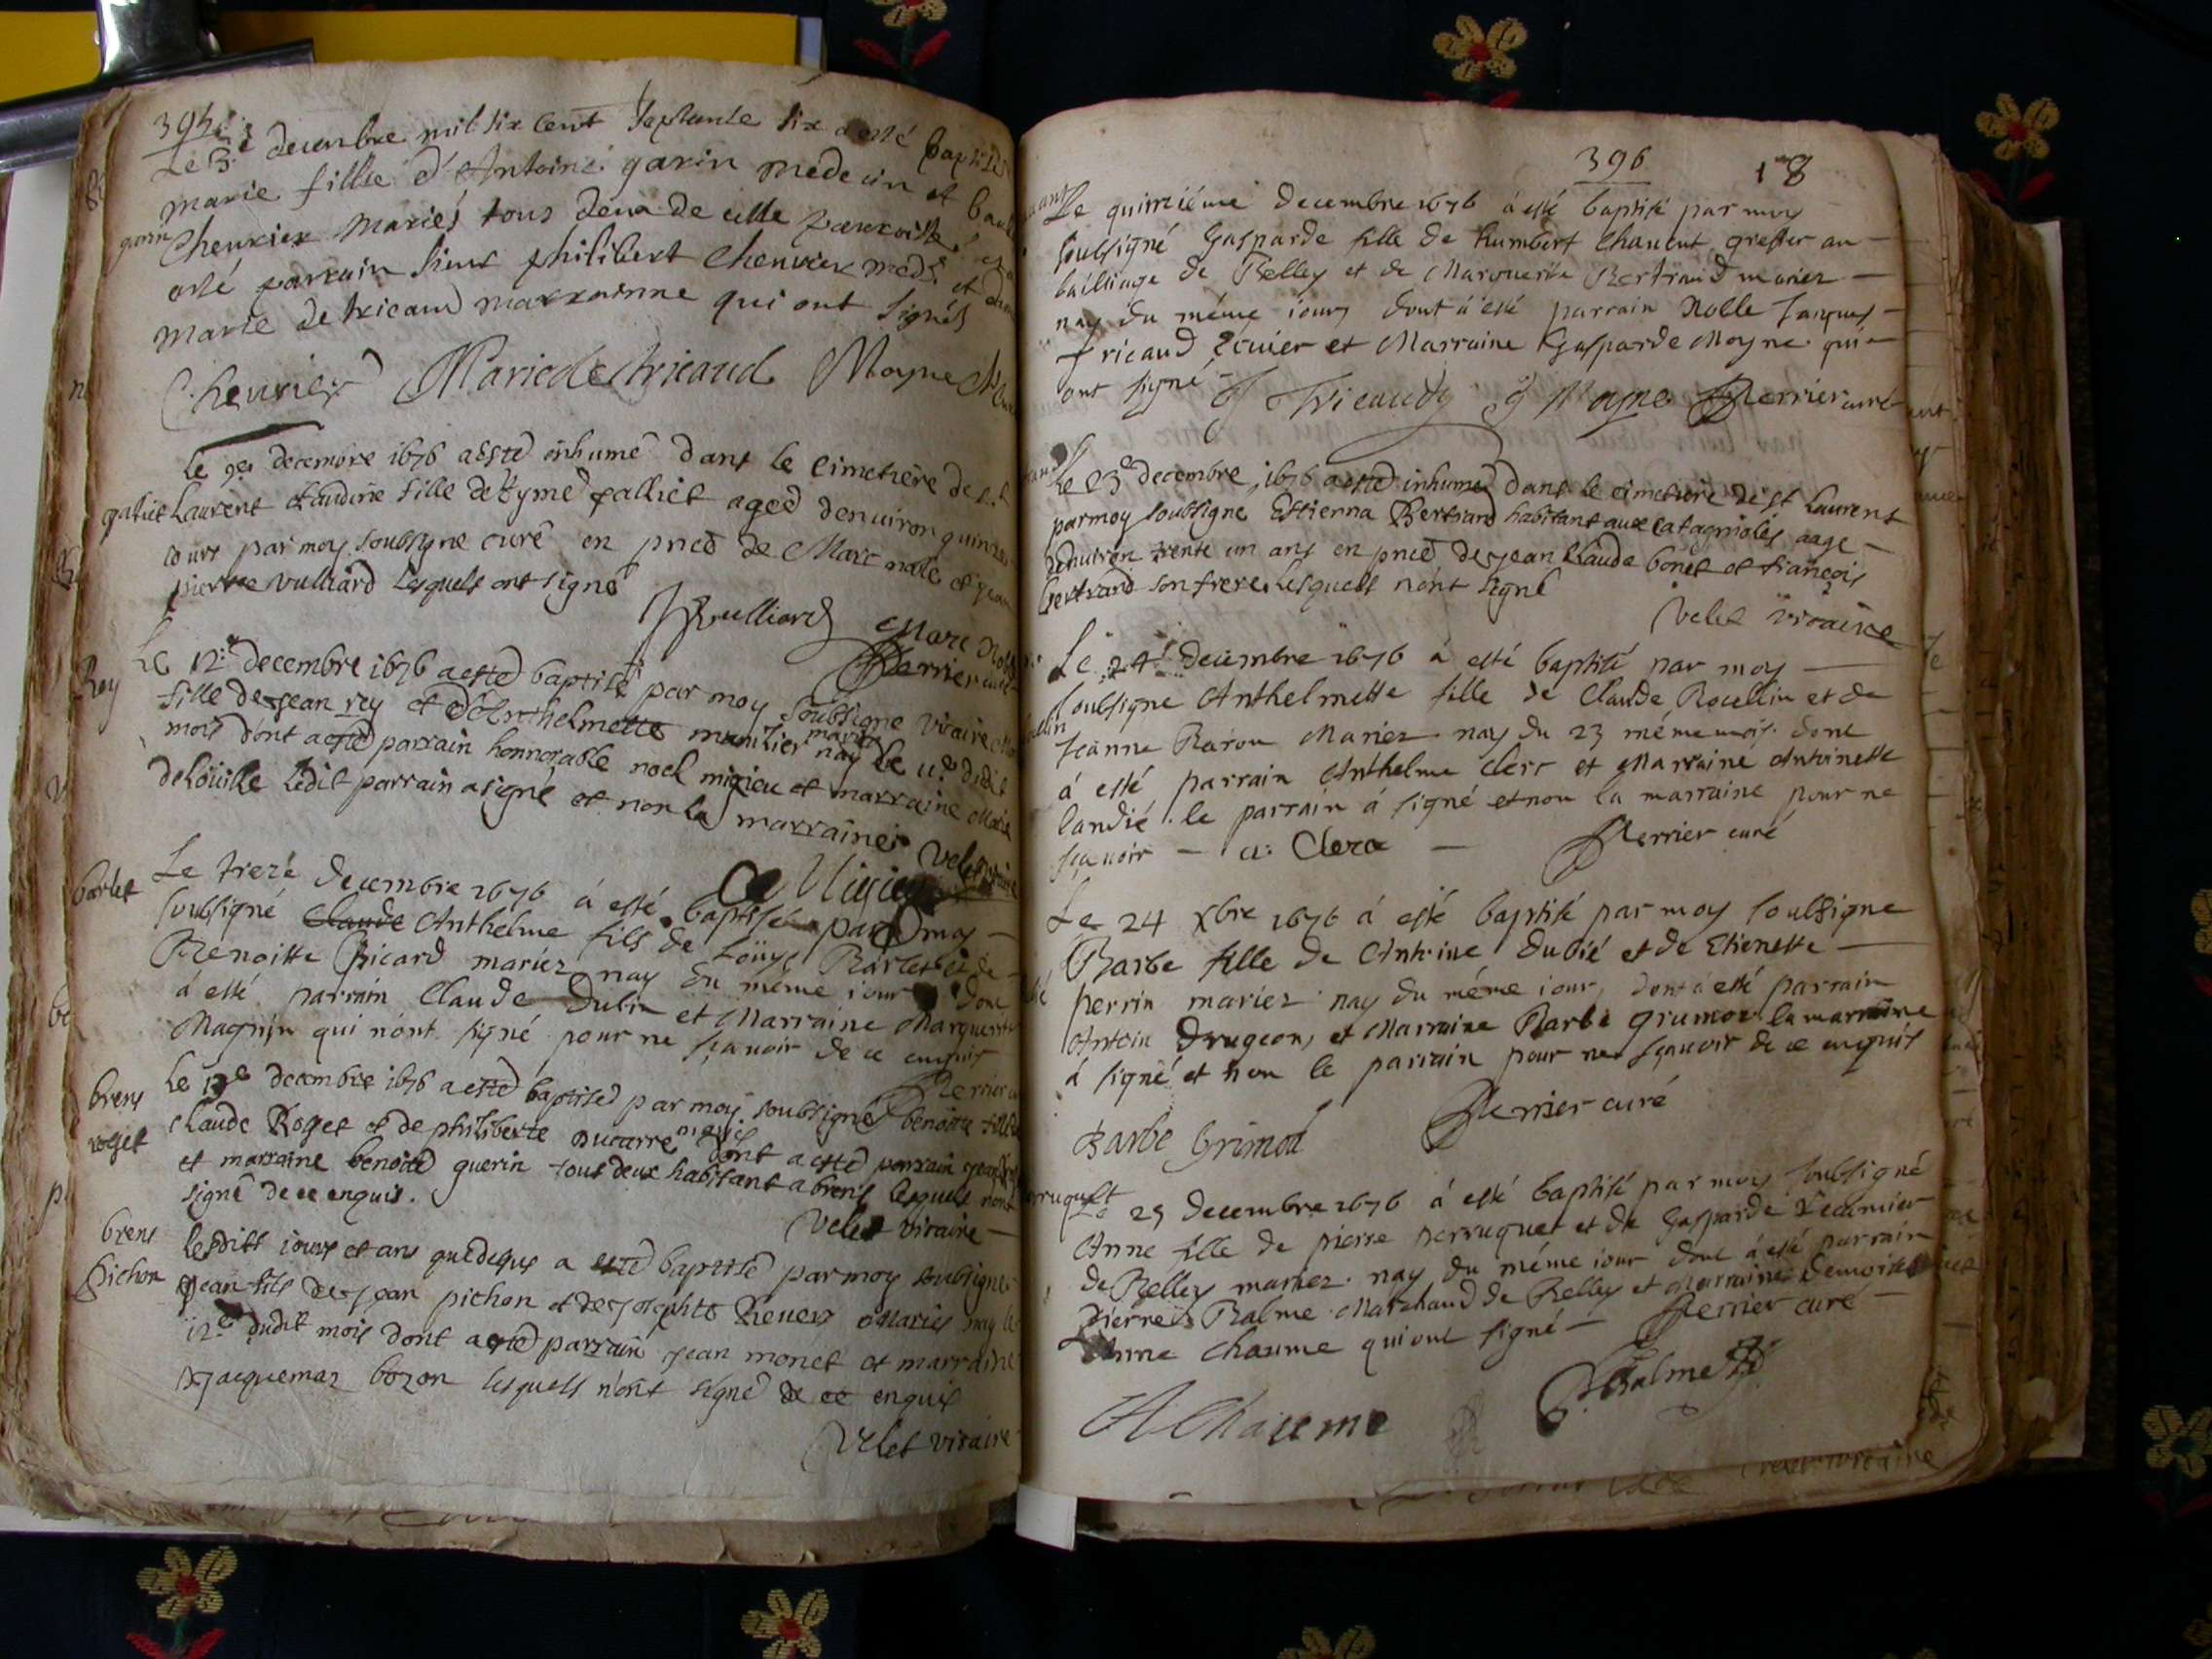 395
Le 3e decembre mil six cent septante six a esté baptisée
marie fillie d'Antoine garin medecin et
garin
Chevrier mariés tous deux de cette parroisse
esté parrain sieur philibert Chevrier med. et
marie de tricaud marrainne qui ont signés
Chevrier Marie de tricaud Moyne
Le 9e decembre 1676 a esté inhumé dans le cimetiere de st
galliet
Laurent claudine fille de Eyme galliet aged denuiron quinze
iours par moy soubsigne curé en pnce de Marc nolle et jean
pierre vulliard lesquels ont signé
Vulliard Marc
Perrier curé
Rey
Le 12e decembre 1676 a esté baptisé par moy soubsigne vicaire
fille de jean rey et d'Anthelmette munitier mariés nay le 11e dudit
mois dont a esté parrain honnorable noel migieu et marraine
ledit parrain a signé et non la marraine
Velet
Migieu
barlet
Le treze decembre 1676 á esté baptisé par moy
soubsigné Claude Anthelme fils de Louys Barlet et de
Benoitte Picard mariez nay du même iour dont
á esté parrain Claude Dubin et Marraine Marguerite
Magnin qui n'ont signé pour ne sçavoir de ce enquis
Perrier
brens
roget
Le 13e decembre 1676 a esté baptisé par moy soubsigné benoitte fille de
claude Roget et de philiberte ducarre mariés dont a esté parrain jean
et marraine benoitte guerin tous deux habitant a brens lesquels nont
signé de ce enquis.
Velet vicaire
brens
pichon
lesdits iours et ans que dessus a esté baptisé par moy soubsigne
jean fils de jean pichon et de josephte Reney Mariés nay le
12e dudit mois dont a esté parrain jean monet et marraine
jacquemaz bozon lesquels n'ont signé de ce enquis
Velet vicaire
396 18
Le quinziéme decembre 1676 á esté baptisé par moy
soubsigné Gasparde fille de humbert Chauent greffier au
bailliage de Belley et de Marguerite Bertrand mariez
nay du même iour dont á esté parrain Nolle Jacques
Tricaud Ecuier et Marraine Gasparde Moyne qui
ont signé
J Tricaud g Moyne Perrier curé
Le 23e decembre 1676 a esté inhumé dans le cimetiere de st Laurent
par moy soubsigne Estienna Bertrand habitant aux catagnioles aage
denuiron trente un ans en pnce de jean claude bonet et françois
bertrand son frere lesquels n'ont signé
Velet vicaire
Le 24e decembre 1676 á esté baptisé par moy
soubsigne Anthelmette fille de Claude Rocellin et de
Jeanne Baron Mariez nay du 23 même mois dont
á esté parrain Anthelme Clerc et Marraine Antoinette
landié le parrain á signé et non la marraine pour ne
sçavoir a: Clerc Perrier curé
Le 24 Xbre 1676 á esté baptisé par moy soubsigne
Barbe fille de Antoine Dubié et de Etienette
perrin mariez nay du même iour, dont á esté parrain
Antoin Drugeon, et Marraine Barbe grumoz la marraine
á signé et non le parrain pour ne sçavoir de ce enquis
Perrier curé
Barbe Grimod
perruquet
Le 25 decembre 1676 á esté baptisé par moy soubsigné
Anne fille de pierre perruquet et de Gasparde Recamier
de Belley mariez nay du même iour dont á esté parrain
pierre Balme Marchand de Belley et Marraine Demoiselle
Anne Chaume qui ont signé Perrier curé
P. Balme
A Chaume